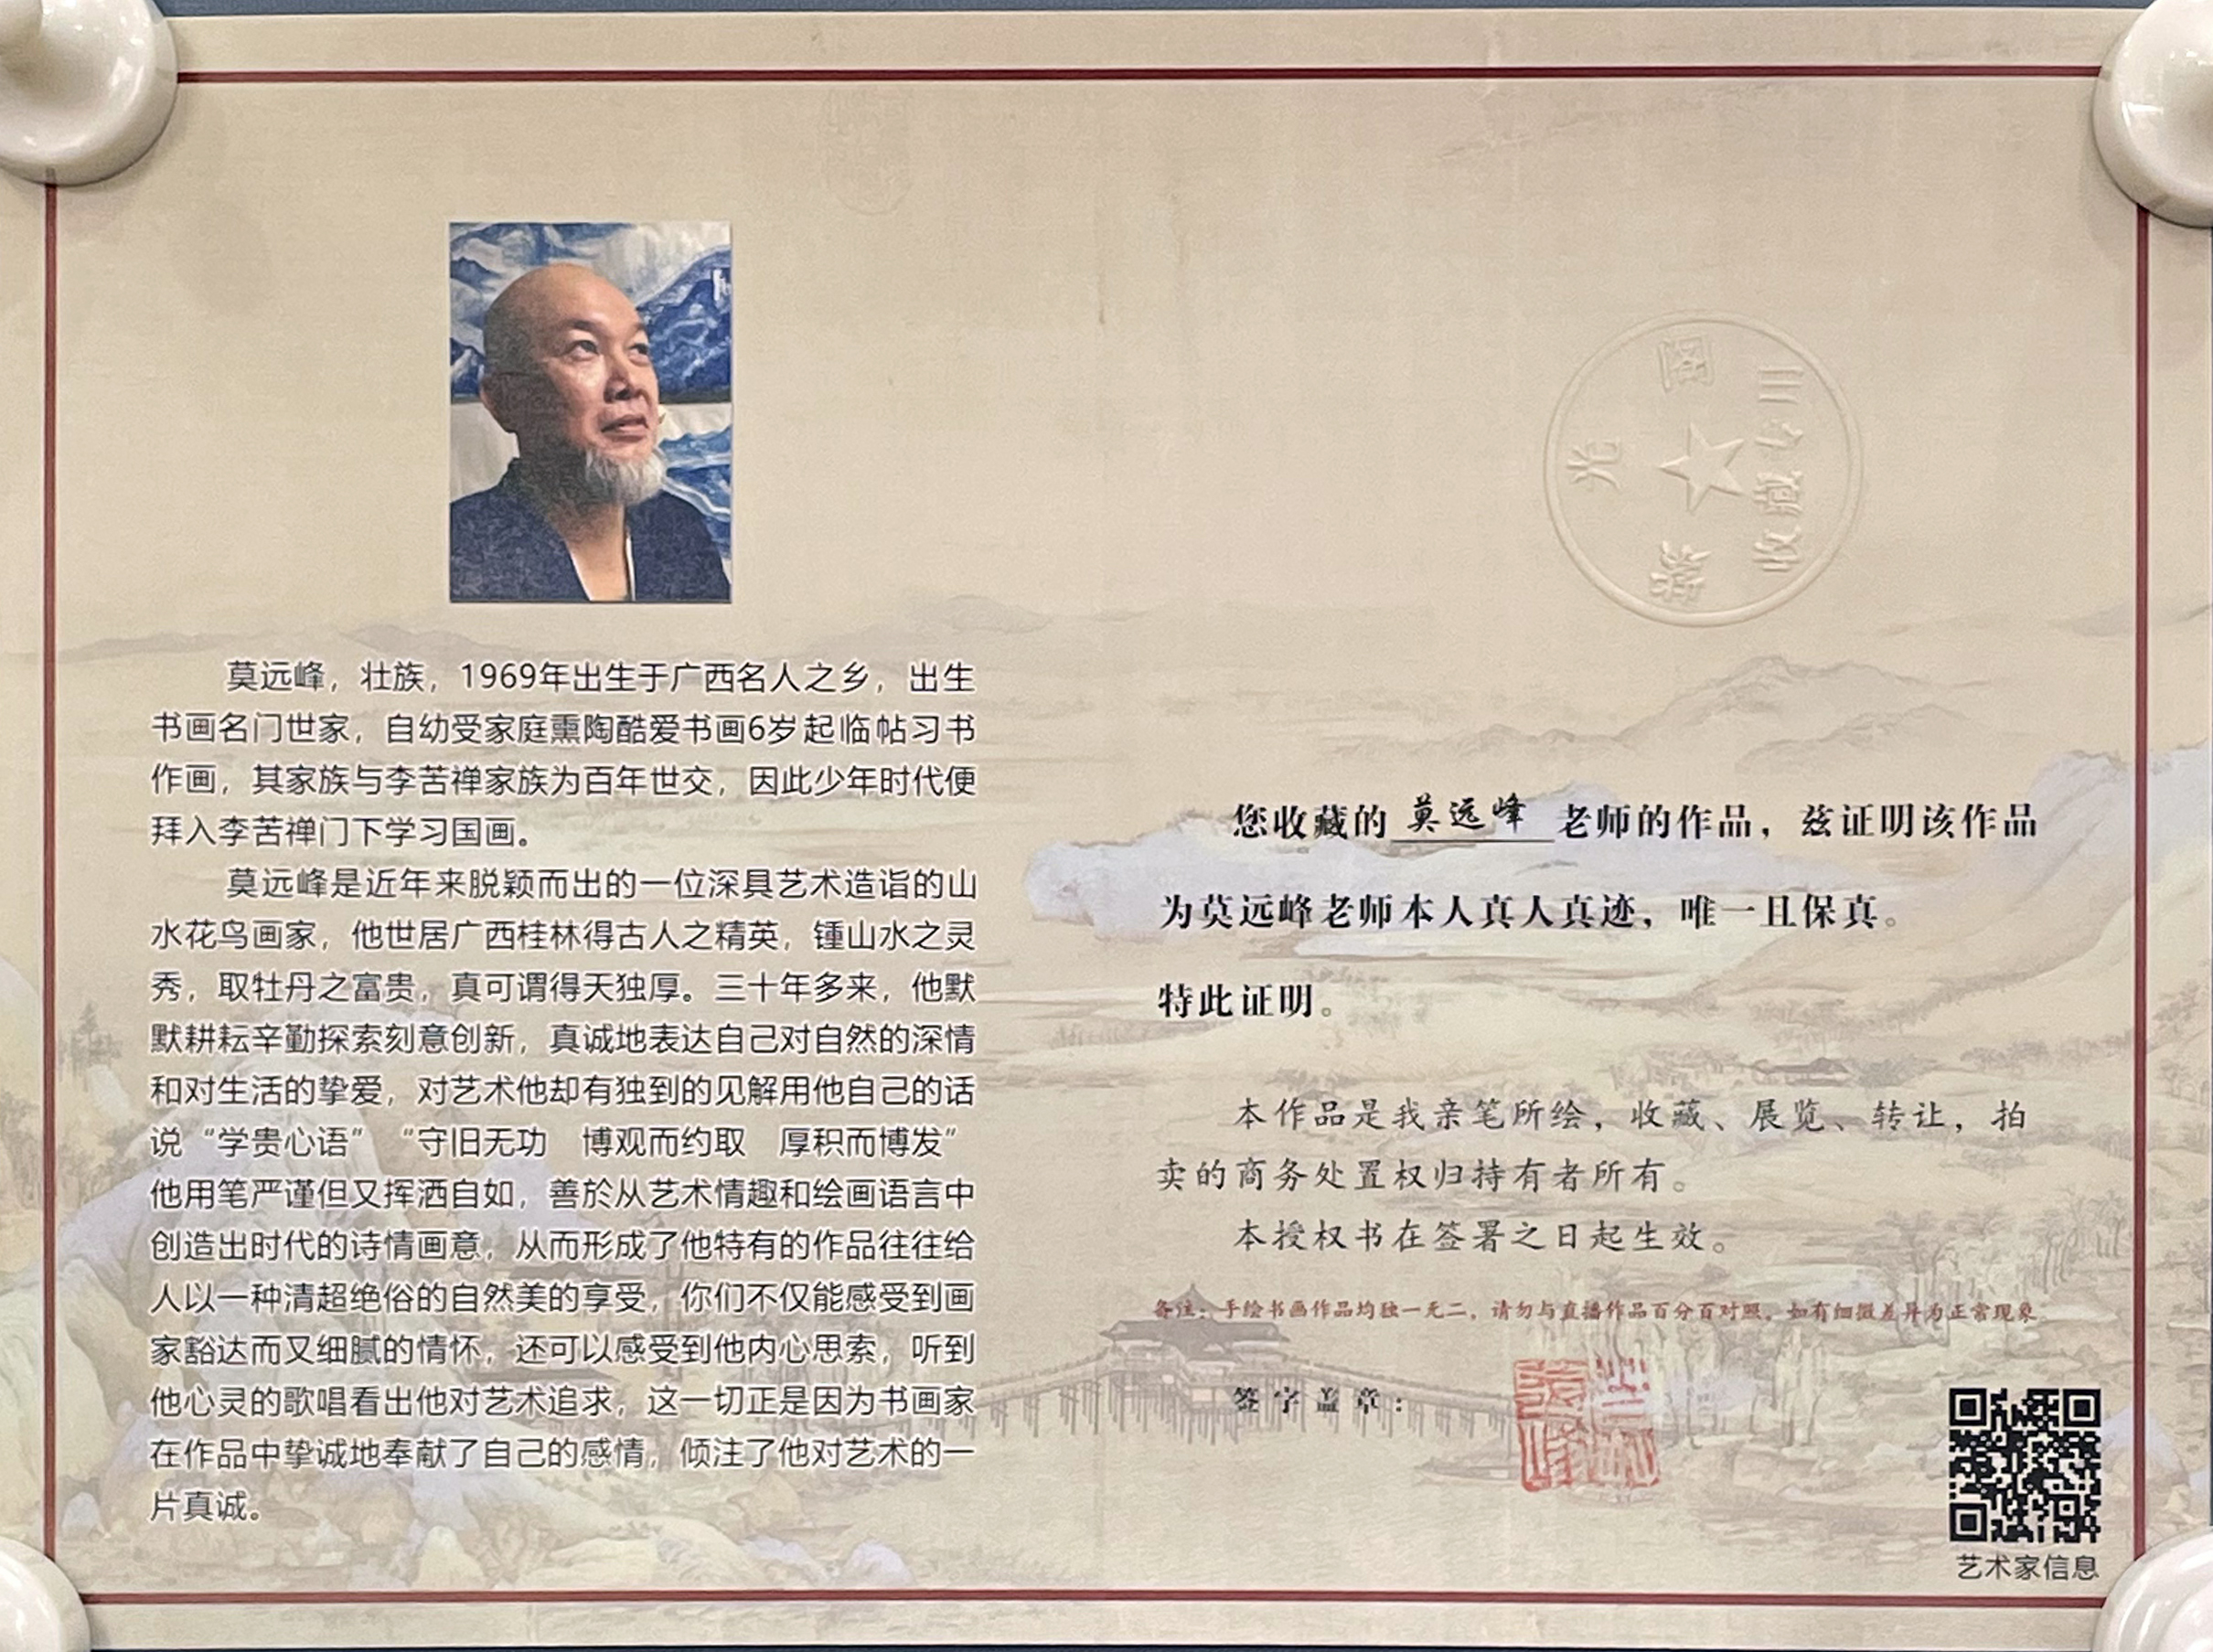 莫远峰，壮族，1969年出生于广西名人之乡，出生
书画名门世家，自幼受家庭熏陶酷爱书画6岁起临帖习书
作画，其家族与李苦禅家族为百年世交，因此少年时代便
拜入李苦禅门下学习国画。
莫远峰是近年来脱颖而出的一位深具艺术造诣的山
水花鸟画家，他世居广西桂林得古人之精英，锺山水之灵
秀，取牡丹之富贵，真可谓得天独厚。三十年多来，他默
默耕耘辛勤探索刻意创新，真诚地表达自己对自然的深情
和对生活的挚爱，对艺术他却有独到的见解用他自己的话
说“学贵心语”“守旧无功　博观而约取　厚积而博发”
他用笔严谨但又挥洒自如，善於从艺术情趣和绘画语言中
创造出时代的诗情画意，从而形成了他特有的作品往往给
人以一种清超绝俗的自然美的享受，你们不仅能感受到画
家豁达而又细腻的情怀，还可以感受到他内心思索，听到
他心灵的歌唱看出他对艺术追求，这一切正是因为书画家
在作品中挚诚地奉献了自己的感情，倾注了他对艺术的一
片真诚。
阁
光
收藏专
您收藏的莫远峰老师的作品，兹证明该作品
为莫远峰老师本人真人真迹，唯一且保真。
特此证明。
本作品是我亲笔所绘，收藏、展览、转让，拍
卖的商务处置权归持有者所有。
本授权书在签署之日起生效。
备注：手绘书画作品均独一无二，请勿与直播作品百分百对照，如有细微差异为正常现象
签字盖章：
艺术家信息